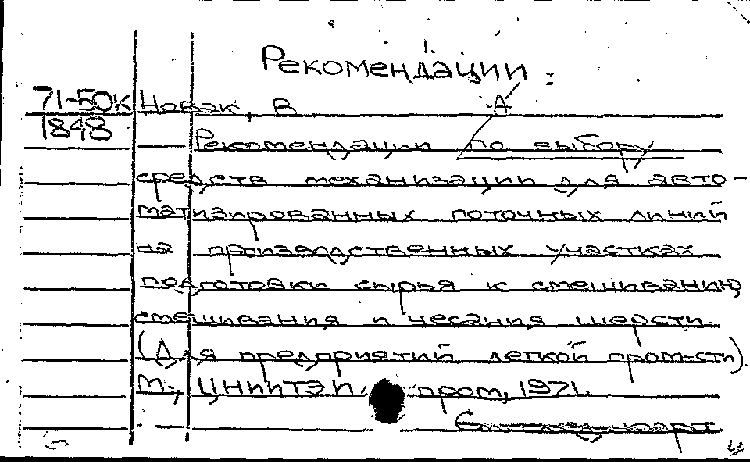 Рекомендации :
71-50к Новак, В А
1848
Рекомендации по выбору
средств механизации для авто-
матизированных поточных линий
на производственных участках
подготовки сырья к смешиванию,
смешивания и чесания шерсти
(Для предприятий легкой пром-сти).
М., ЦНИИТЭИ пром, 1971.